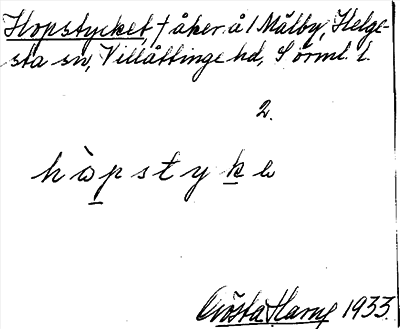 Hopstycket, † åker å 1 Målby, Helge-
sta sn, Villåttinge hd, Sörml. l.
2.
hòpstyke
Gösta Harne 1933.